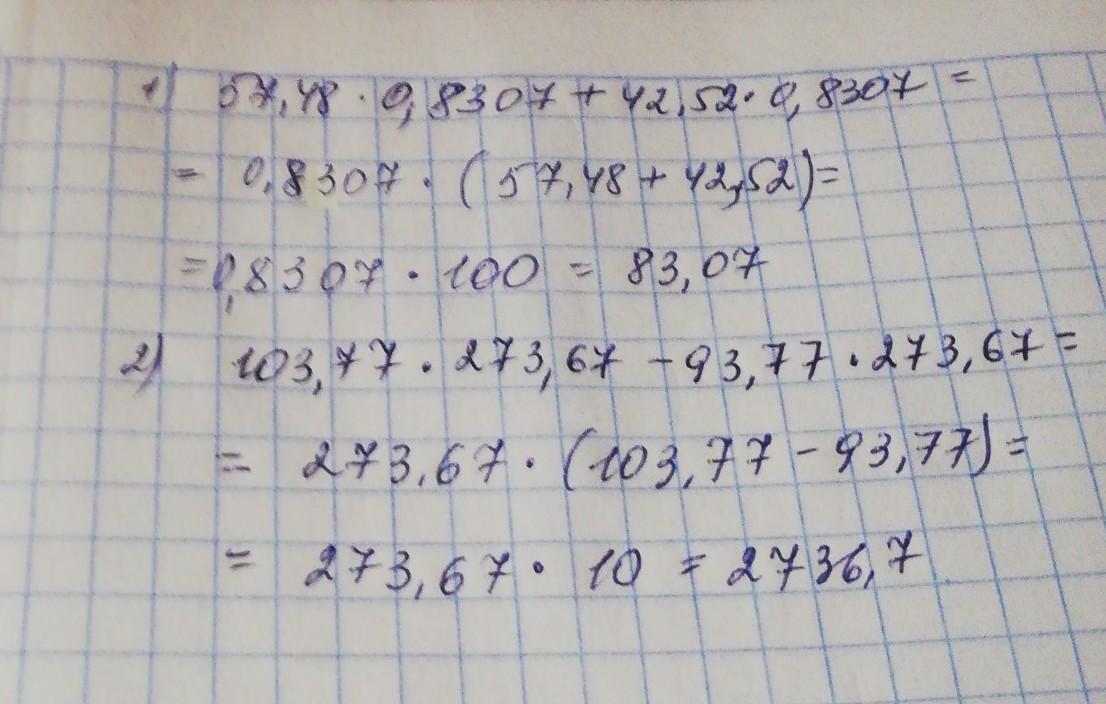 1) 57,48 · 0,8307 + 42,52 · 0,8307 =
= 0,8307 · (57,48 + 42,52) =
= 0,8307 · 100 = 83,07
2) 103,77 · 273,67 - 93,77 · 273,67 =
= 273,67 · (103,77 - 93,77) =
= 273,67 · 10 = 2736,7